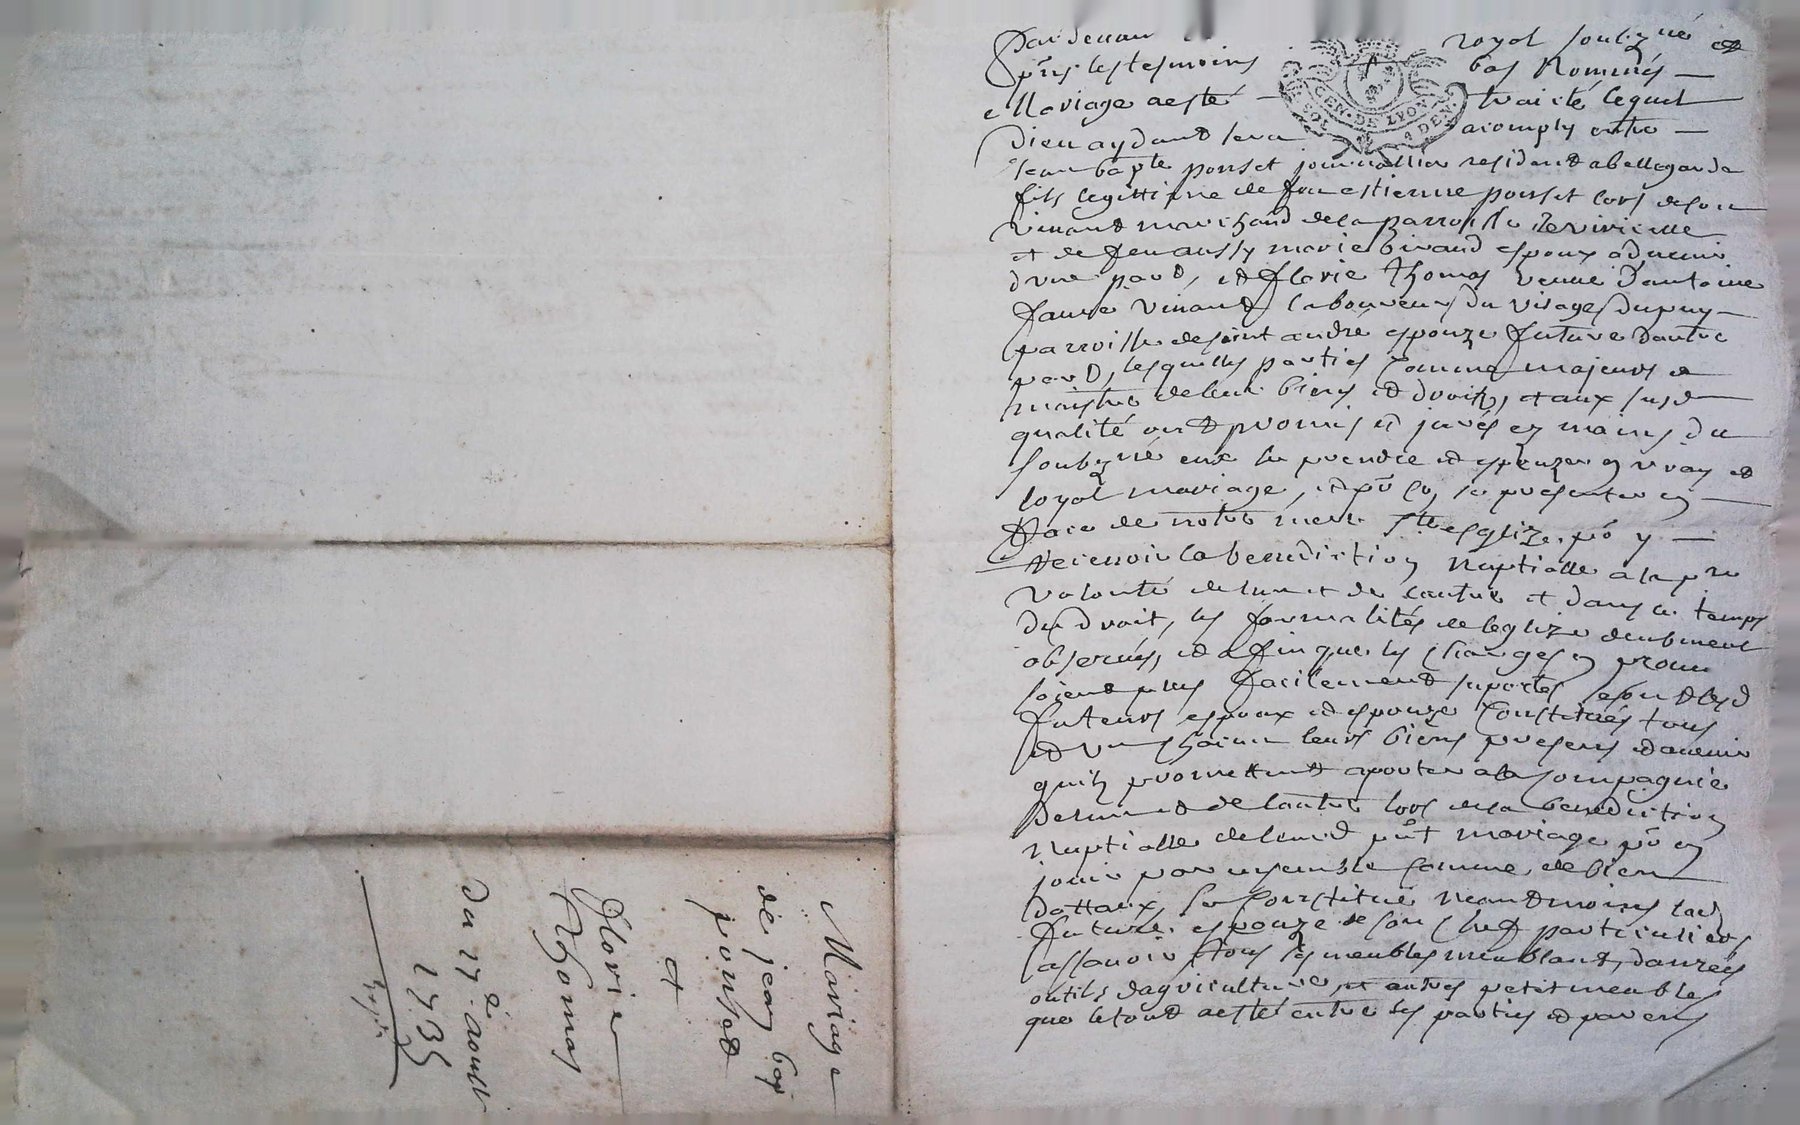 Par devan royal soubzigné et
pñs les tesmoins bas Nommés
Mariage a esté traicté lequel
Dieu aydant sera acomply entre
Jean bapte ponset journallier residant a bellegarde
fils legittime de feu estienne ponset lors de son
vivant marchand de la parroisse
et de feu aussy marie givaud espoux advenir
d'vne part, et flovie thomas veuve D'antoine
faure vivant laboureur du visages dupuy
parroisse de saint andré espouze future dautre
part, lesquelles parties comme majeurs et
maistre de leur biens et droits, et aux susd
qualité ont promis et jurés es mains du
soubzné eux se prendre et espouzer en vray et
loyal mariage, et pō ce, se presenter en
face de notre mere ste esglize pō y
recevoir la benediction Nuptialle a la pre
volonté de lun et de lautre et dans le temps
du droit, les formalités de leglize deubment
observées, et afin que les charges en
soient plus facilement suportés se sont lesd
futeurs espoux et espouze Constitués tous
et vn chacun leurs biens presens et avenir
quils promettent aporter a la compagnie
De lun et de lautre lors de la benediction
Nuptialle de leurd pñt mariage pō en
jouir par ensemble comme de bien
dottaux, se constitue neantmoins lad
future espouze de son chef particuliers
assavoir tous ses meubles meublant, danrées
outils dagriculture, et autres petit meubles
que le tout a esté entre les parties et parens
GEN. DE LYON
SOL 4 DEN.
Mariage
de jean bap
ponset
et
flovie
thomas
Du 27e aoust
1735